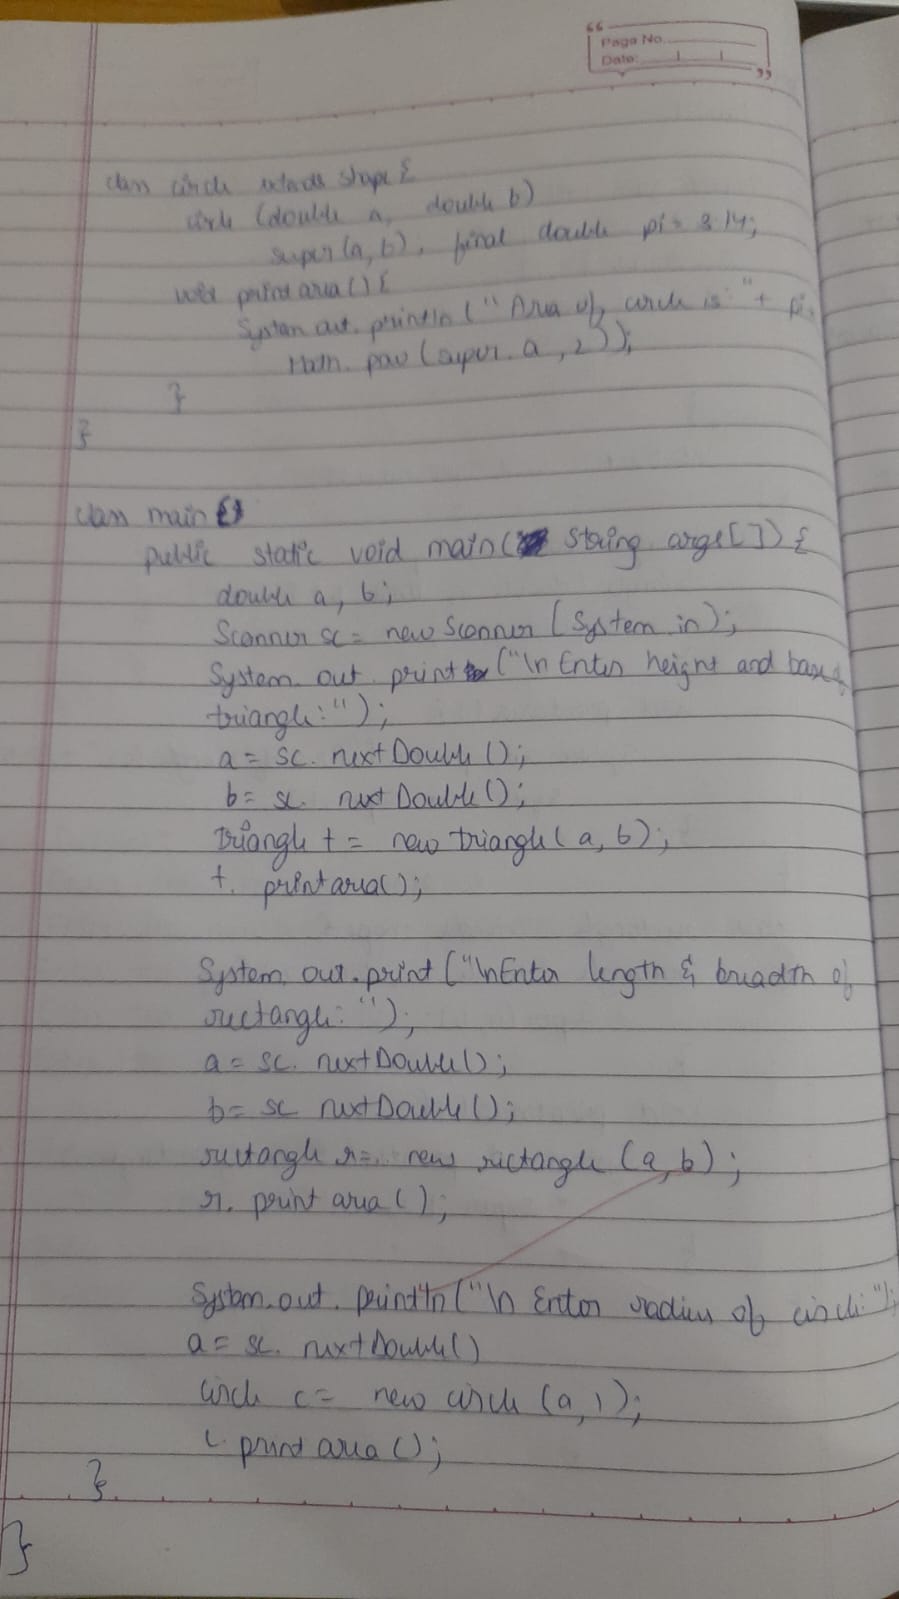 Page No.
Date:
class circle extends shape {
circle (double a, double b)
super(a, b), final double pi = 3.14;
void print area () {
System out. println ("Area of circle is:" + pi
Math. pow (super. a , 2));
}
}
class main {
public static void main( String args[ ]) {
double a, b;
Scanner sc = new Scanner (System in);
System. out. print ("\n Enter height and base
triangle:");
a = sc. nextDouble ();
b = sc. next Double();
Triangle t = new triangle( a, b);
t. print area();
System. out. print ("\nEnter length & breadth of
rectangle: ");
a = sc. nextDouble();
b = sc nextDouble();
rectangle r = new rectangle (a, b);
r. print area ();
System. out. println ("\n Enter radius of circle:");
a = sc. nextDouble()
Circle c = new circle (a, 1);
c print area ();
}
}